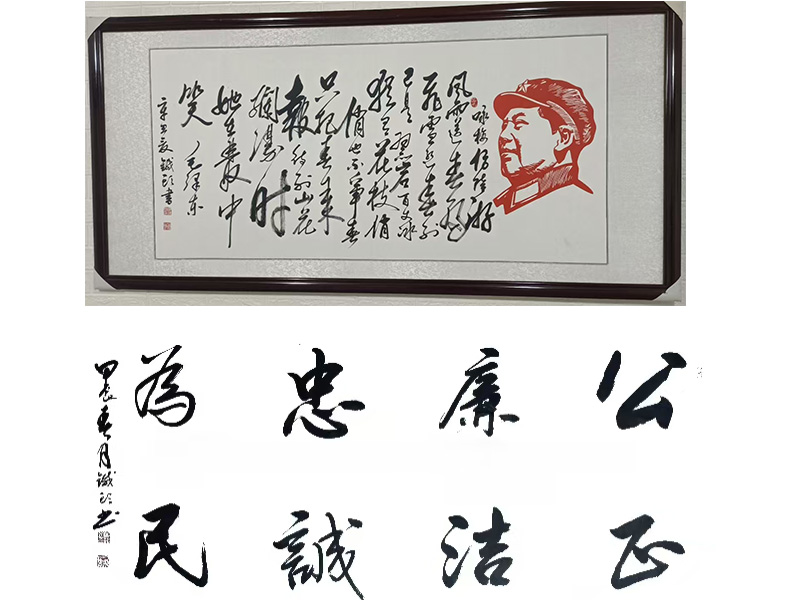 咏梅
风雨送春归
飞雪迎春到
已是悬崖百丈冰
犹有花枝俏
俏也不争春
只把春来
报待到山花
烂漫时
她在丛中
笑 毛泽东
辛丑夏 书
公正
廉洁
忠誠
為民
甲辰春月 书